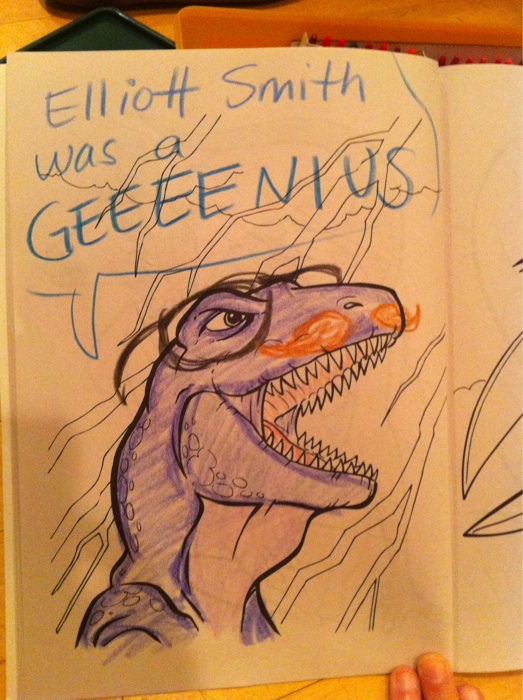 Elliott Smith
was a
GEEEENIUS